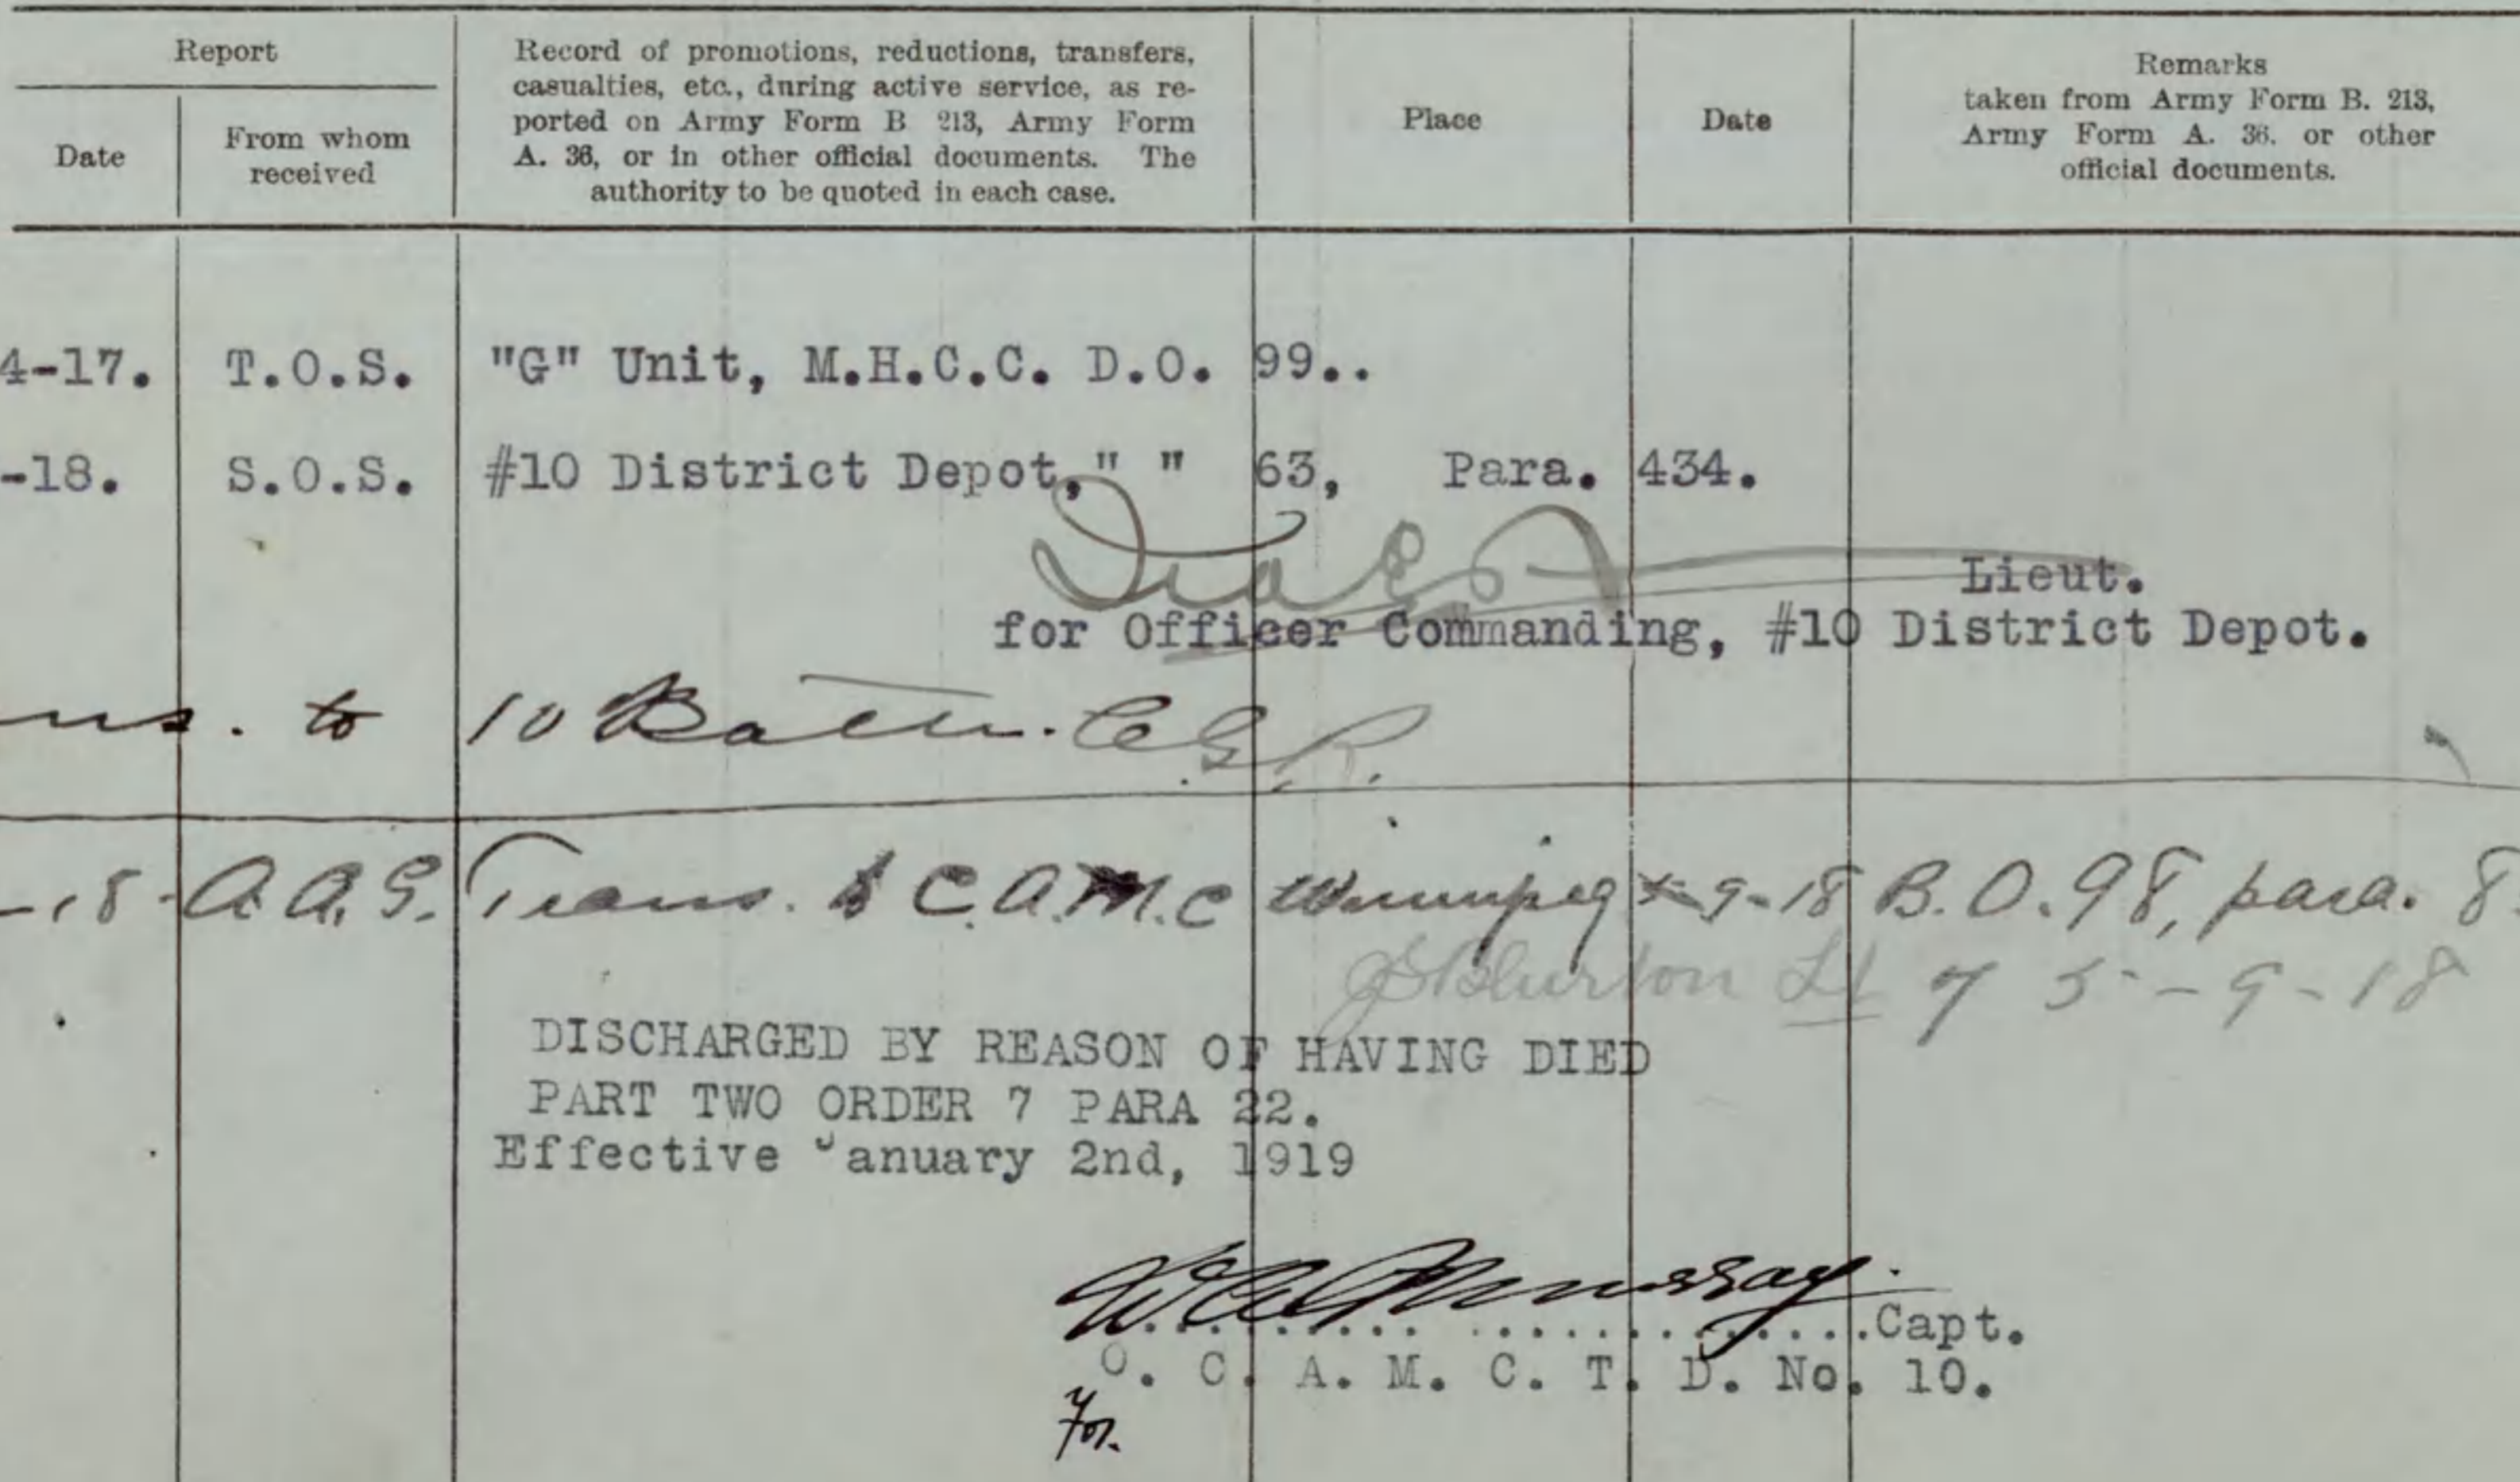 Report
Date
From whom
received
Record of promotions, reductions, transfers,
casualties, etc., during active service, as re-
ported on Army Form B 213, Army Form
A. 36, or in other official documents. The
authority to be quoted in each case.
Place
Date
Remarks
taken from Army Form B. 213,
Army Form A. 36. or other
official documents.
4-17. T.O.S. "G" Unit, M.H.C.C. D.O. 99..
-18. S.O.S. #10 District Depot, " " 63, Para. 434.
Lieut.
for Officer Commanding, #10 District Depot.
ns. to 10 Battn. C.G.R.
-18. A.A.G. Trans. C.A.M.C Winnipeg 9-18 B.O. 98, para. 8
Lt 5-9-18
DISCHARGED BY REASON OF HAVING DIED
PART TWO ORDER 7 PARA 22.
Effective January 2nd, 1919
Murray
Capt.
O. C. A. M. C. T. D. No. 10.
For.